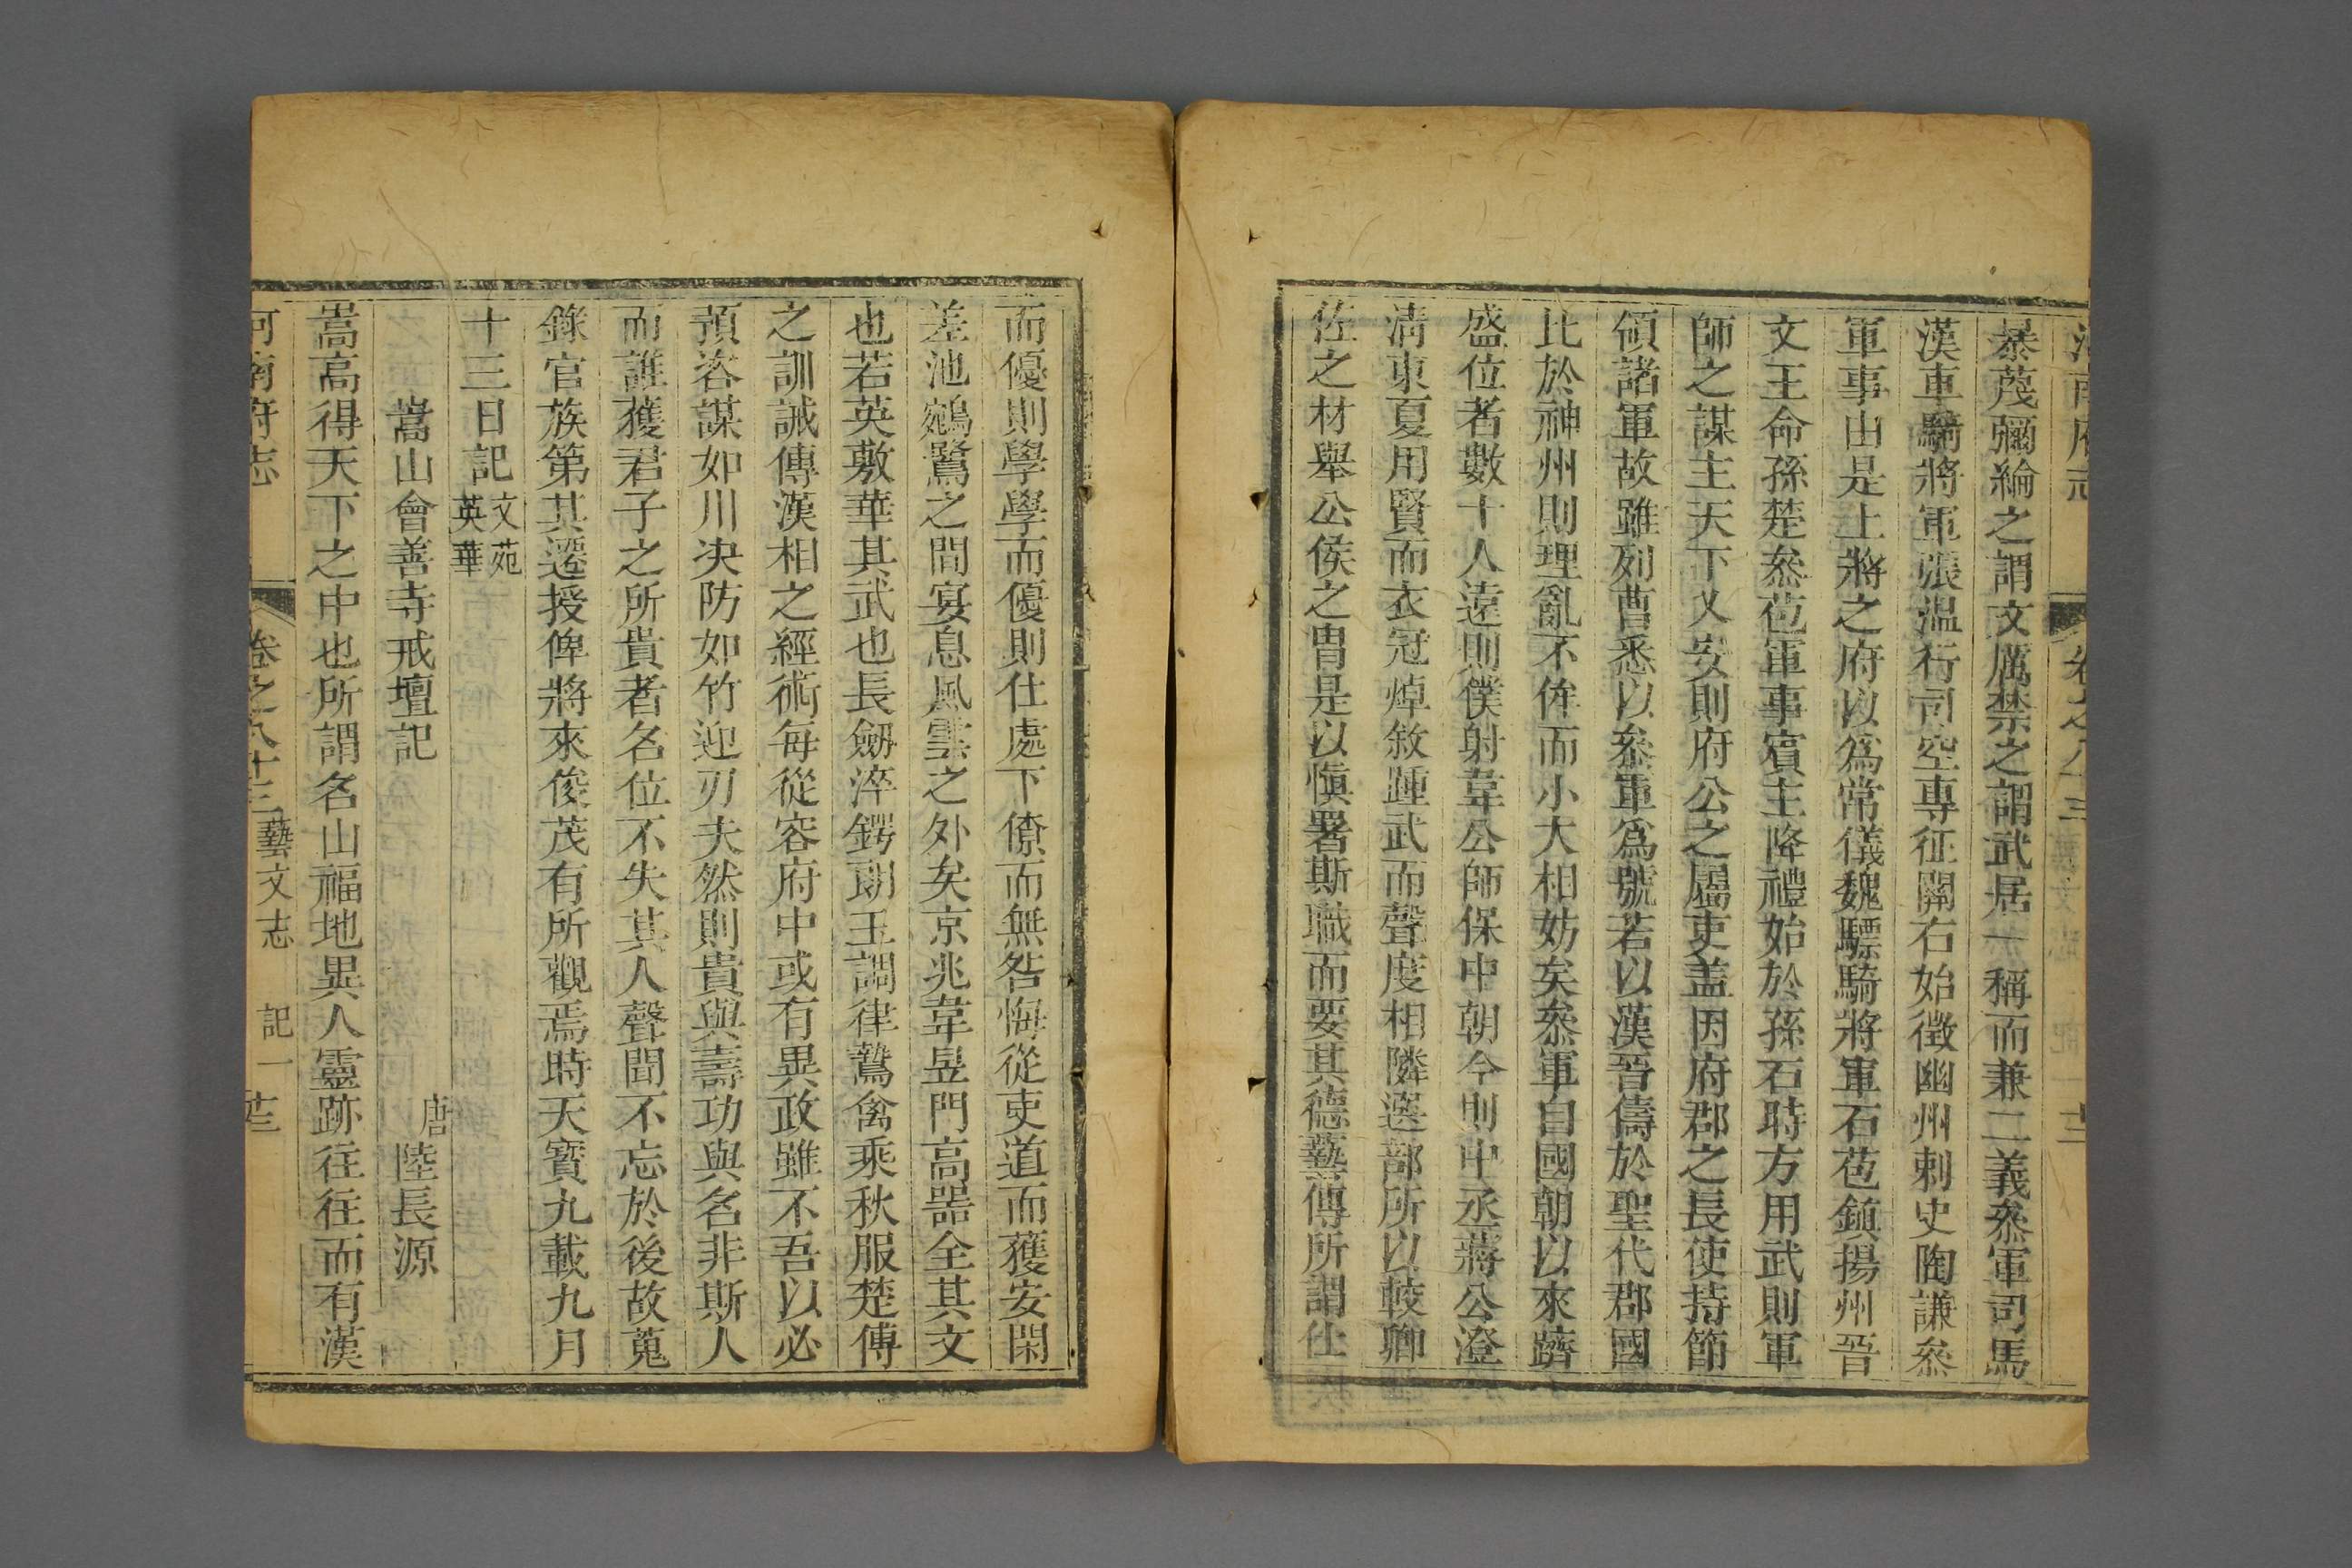 河南府志 卷之八十三
暴蔑彌綸之謂文厲禁之謂武居一稱而兼二義叅軍司馬
漢車騎將軍張溫行司空專征關右始徵幽州刺史陶謙叅
軍事由是上將之府以爲常儀魏驃騎將軍石苞鎮揚州晉
文王命孫楚叅苞軍事賓主降禮始於孫石時方用武則軍
師之謀主天下乂安則府公之屬吏盖因府郡之長使持節
領諸軍故雖列曹悉以叅軍爲號若以漢晉儔於聖代郡國
比於神州則理亂不侔而小大相妨矣叅軍自國朝以來躋
盛位者數十人遠則僕射韋公師保中朝今則中丞蔣公澄
清東夏用賢而衣冠焯敘踵武而聲度相隣選部所以較卿
佐之材舉公侯之胄是以愼署斯職而要其德藝傳所謂仕
而優則學學而優則仕處下僚而無咎悔從吏道而獲安閑
差池鵷鷺之間宴息風雲之外矣京兆韋昱門高噐全其文
也若英敷華其武也長劒淬鍔朗玉調律鷙禽乘秋服楚傅
之訓誡傳漢相之經術每從容府中或有異政雖不吾以必
預咨謀如川决防如竹迎刃夫然則貴與壽功與名非斯人
而誰獲君子之所貴者名位不失其人聲聞不忘於後故蒐
錄官族第其遷授俾將來俊茂有所觀焉時天寳九載九月
十三日記 文苑英華
嵩山會善寺戒壇記 唐 陸長源
嵩高得天下之中也所謂名山福地異人靈跡往往而有漢
河南府志 卷之八十三 藝文志 記一 廿三